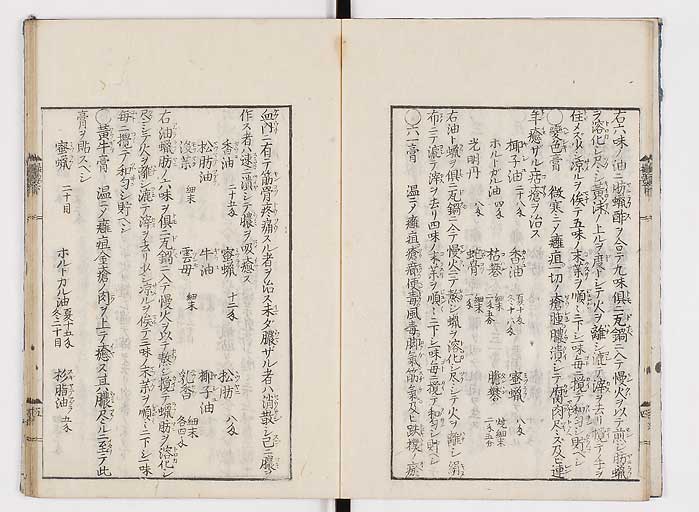 右六味ノ油ニ肪蝋酢ヲ合テ九味俱ニ瓦鍋ニ入テ慢火ヲ以テ煎シ肪蝋
ヲ溶化シ尽シ黄沫ノ上ルヲ度トシテ火ヲ離シ漉テ滓ヲ去リ攪テ手ヲ
住メス少シ涼ルヲ俟テ五味ノ末薬ヲ順ニ下シ味毎ニ攪テ和匀シ貯ベシ
◯変色膏 微寒ニメ癰疽一切ノ瘡腫膿潰シテ腐肉尽ズ及ヒ連
年癒ザル疔瘡ヲ治ス
椰子油 二十八戔 香油 夏十戔 冬十八戔 蜜蝋 八戔
ホルトカル油 四戔 枯礬 細末 膽礬 細末
光明丹 八戔 蛇骨 細末
右油ト蝋ヲ俱ニ瓦鍋ニ入テ慢火ニテ熬シ蝋ヲ溶化シ尽シテ火ヲ離シ絹
布ニテ漉テ滓ヲ去リ四味ノ末薬ヲ順ニ下シ味毎ニ攪テ和匀シ貯ベシ
◯六一膏 温ニメ癰疽瘡癤便毒風毒脚気筋気及ヒ跌撲ノ瘀
血内ニ有テ筋骨疼痛スル者ヲ治ス未タ膿ザル者ハ消散シ已ニ膿
作ス者ハ速ニ潰シテ膿ヲ吸ヒ癒ス
香油 二十五戔 蜜蝋 十二戔 松肪 八戔
松肪油 牛油 椰子油
淡菜 細末 雲母 細末 乳香 細末 各四戔
右油蝋肪ノ六味ヲ俱ニ瓦鍋ニ入テ慢火ヲ以テ熬シ攪テ蝋肪ヲ溶化シ
尽シテ火ヲ離シ漉テ滓ヲ去リ少シ涼ルヲ俟テ三味ノ末薬ヲ順ニ下シ一味
毎ニ攪テ和匀シ貯ベシ
◯黄牛膏 温ニメ癰疽金瘡ノ肉ヲ上テ癒ス且六膿尽ルニ至テ此
膏ヲ貼スベシ
蜜蝋 二十目 ホルトカル油 夏十五戔 冬二十目 杉脂油 五戔